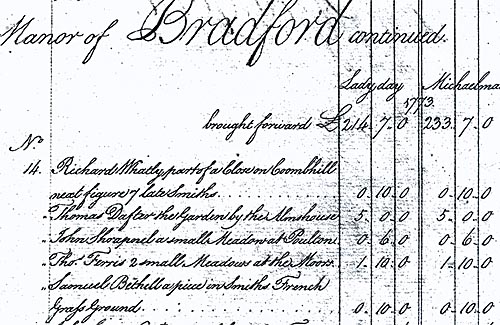 Manor of Bradford continued.
Lady day Michaelmas
1773
brought forward £214. 7. 0 233. 7. 0
No
14. Richard Whatly, part of a Close on Coombhill
next figure 7 late Smiths 0. 10. 0 0. 10. 0
" Thomas Dafter the Garden by the Almshouse 5. 0. 0 5. 0. 0
" John Shrapnel a small Meadow at Poulton 0. 6. 0 0. 6. 0
" Thos. Ferris 2 small Meadows at the Moor 1. 10. 0 1. 10. 0
" Samuel Bethell a piece in Smiths French
Grass Ground 0. 10. 0 0. 10. 0